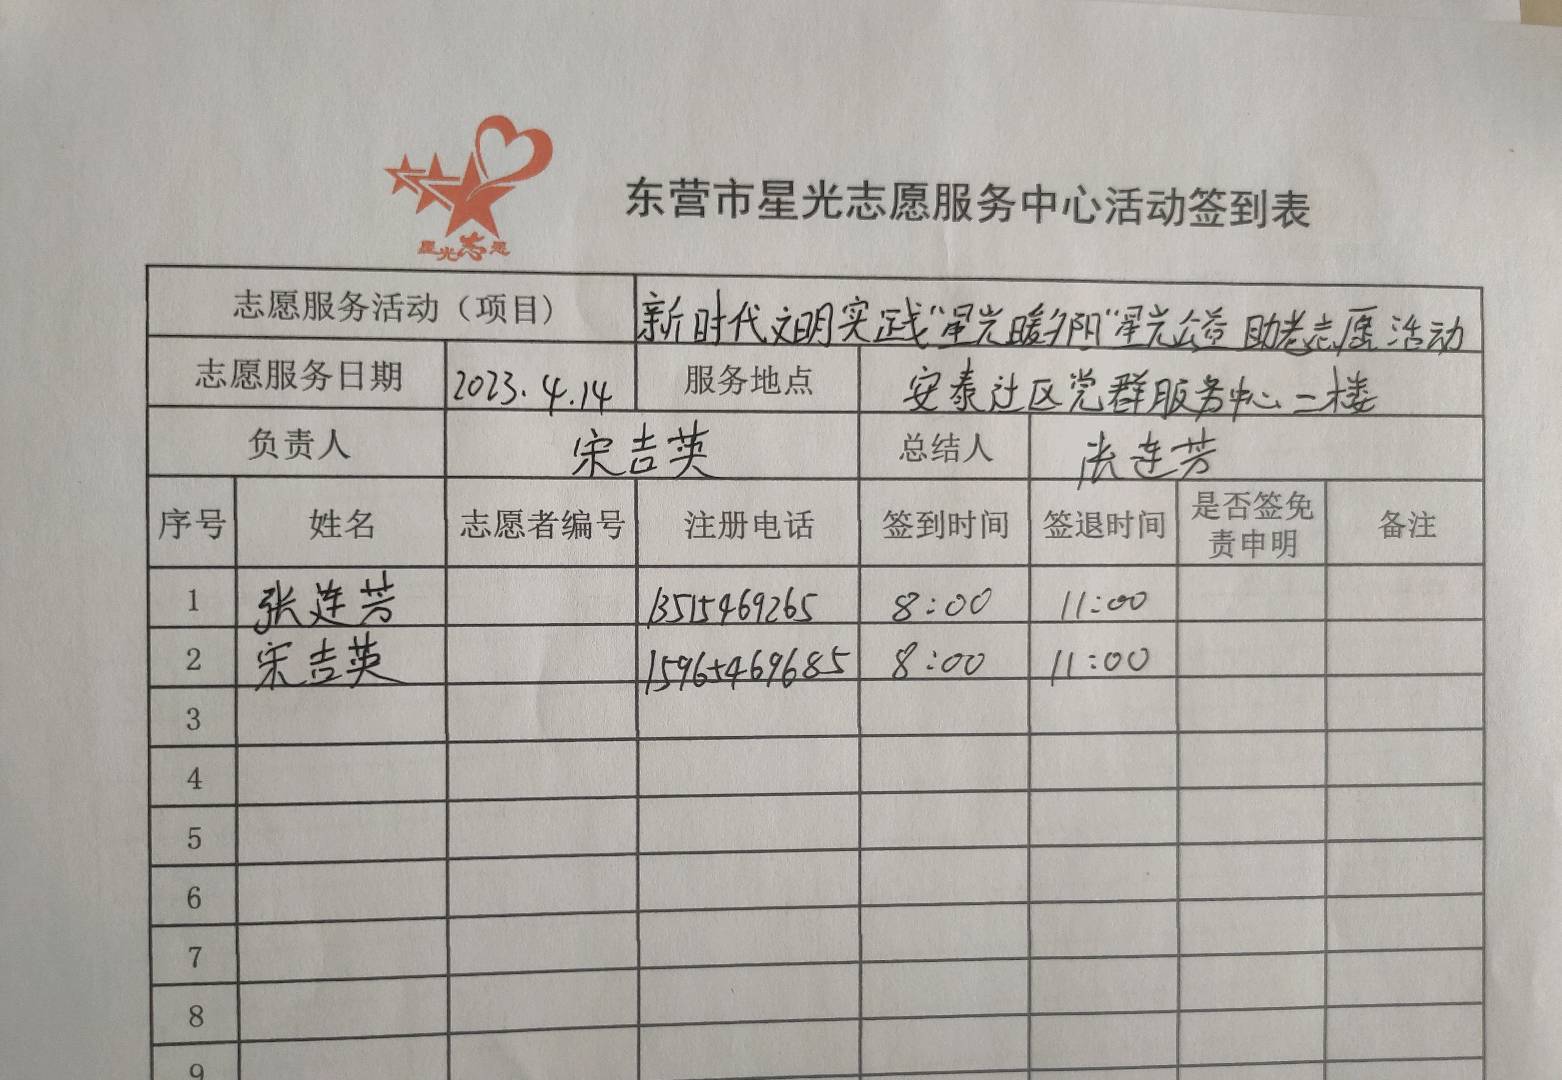 星光志愿
东营市星光志愿服务中心活动签到表
志愿服务活动（项目） 新时代文明实践“星光暖夕阳”星光公益助老志愿活动
志愿服务日期 2023.4.14 服务地点 安泰社区党群服务中心二楼
负责人 宋吉英 总结人 张连芳
序号 姓名 志愿者编号 注册电话 签到时间 签退时间 是否签免 备注
责申明
1 张连芳 13515469265 8:00 11:00
2 宋吉英 15965469685 8:00 11:00
3
4
5
6
7
8
9